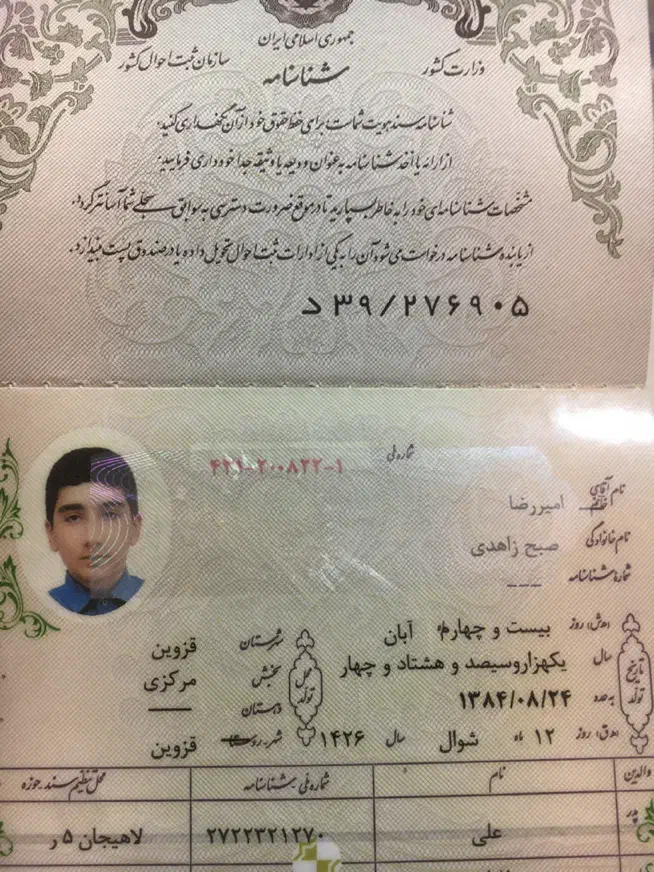 جمهوری اسلامی ایران
وزارت کشور
سازمان ثبت احوال کشور
شناسنامه
شناسنامه سند هویت شماست برای حفظ حقوق خود از آن نگهداری کنید.
از ارائه یا اخذ شناسنامه به عنوان ودیعه یا وثیقه جدا خودداری فرمایید.
مشخصات شناسنامه‌ای خود را به خاطر بسپارید تا در موقع ضرورت دسترسی به سوابق سجلی شما آسانتر گردد.
از یابنده شناسنامه درخواست می شود آن را به یکی از ادارات ثبت احوال تحویل داده یا در صندوق پست بیندازد.
د ۳۹/۲۷۶۹۰۵
شماره ملی
نام آقای امیررضا
نام خانوادگی صبح زاهدی
شماره شناسنامه ---
تاریخ تولد
روز بیست و چهارم آبان
سال یکهزار و سیصد و هشتاد و چهار
به عدد ۱۳۸۴/۰۸/۲۴
روز ۱۲ ماه شوال سال ۱۴۲۶
محل تولد
شهرستان قزوین
بخش مرکزی
دهستان
شهر قزوین
والدین نام شماره ملی - شناسنامه محل تنظیم سند حوزه
پدر علی ۲۷۲۲۳۲۱۲۷۰ لاهیجان ۵ ر